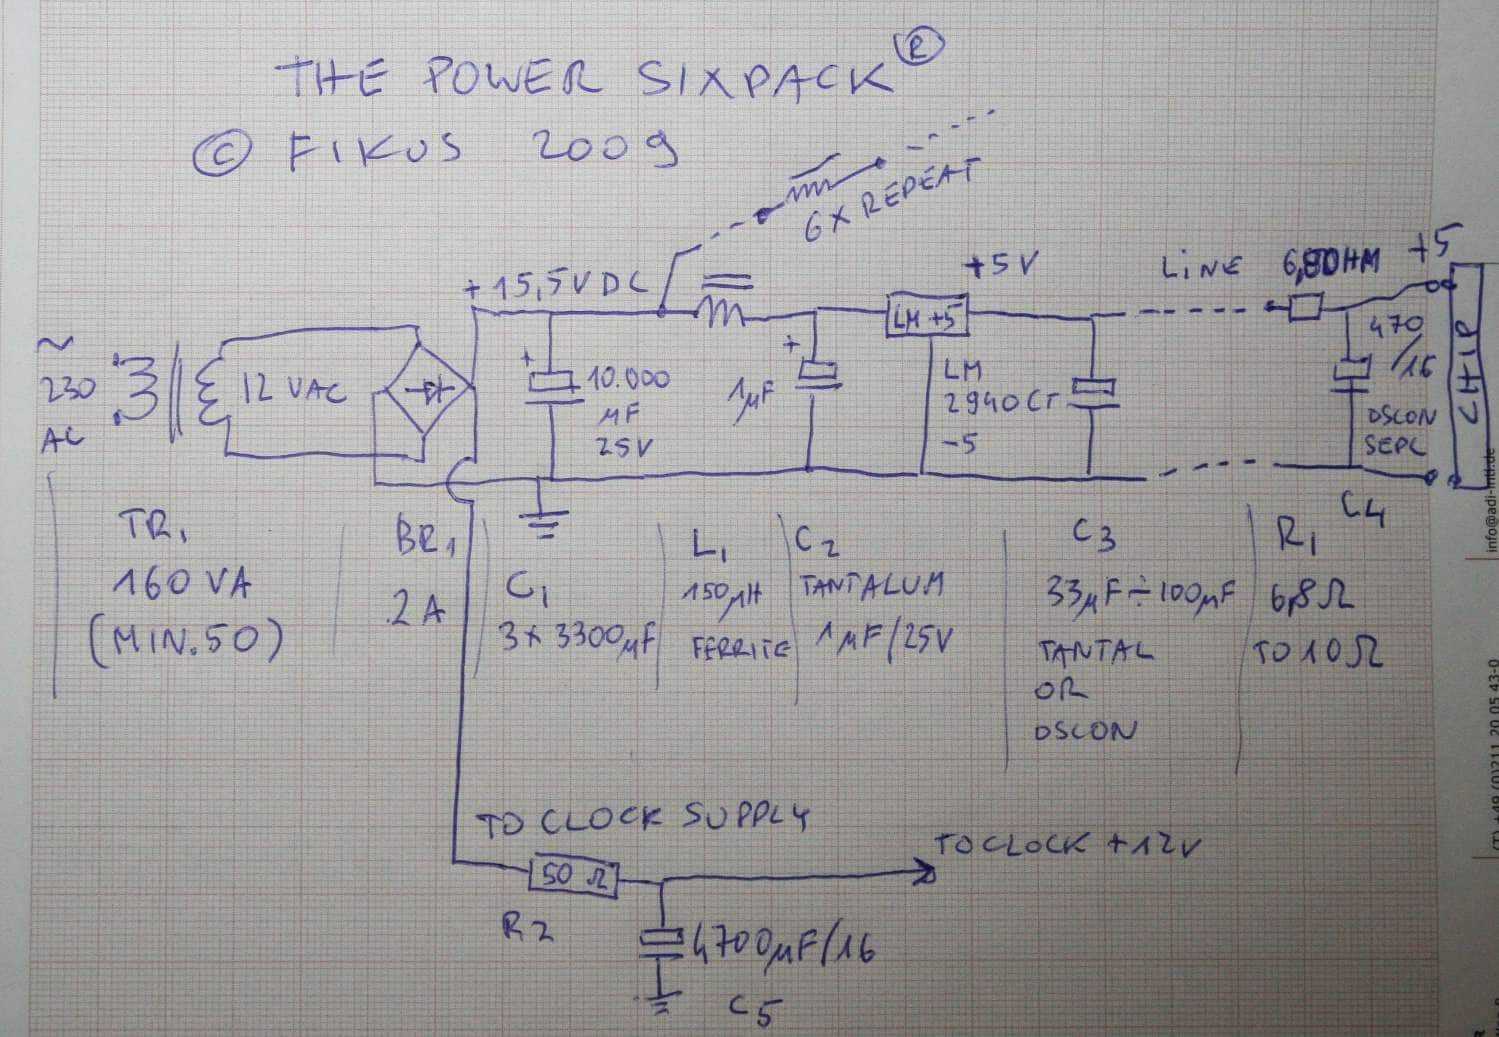 THE POWER SIXPACK ®
© FIKUS 2009
6X REPEAT
+15,5VDC
+5V
LINE
6,8OHM
+5
~
230
AC
12 VAC
+
10.000
μF
25V
+
1μF
LM +5
LM
2940CT
-5
470
/16
OSCON
SEPC
CHIP
TR1
160 VA
(MIN.50)
BR1
2A
C1
3x 3300μF
L1
150μH
FERRITE
C2
TANTALUM
1μF/25V
C3
33μF÷100μF
TANTAL
OR
OSCON
R1
6,8Ω
TO 10Ω
C4
TO CLOCK SUPPLY
50 Ω
R2
TO CLOCK +12V
4700μF/16
C5
info@adi-intl.de
(T) +49 (0)211 20 05 43-0